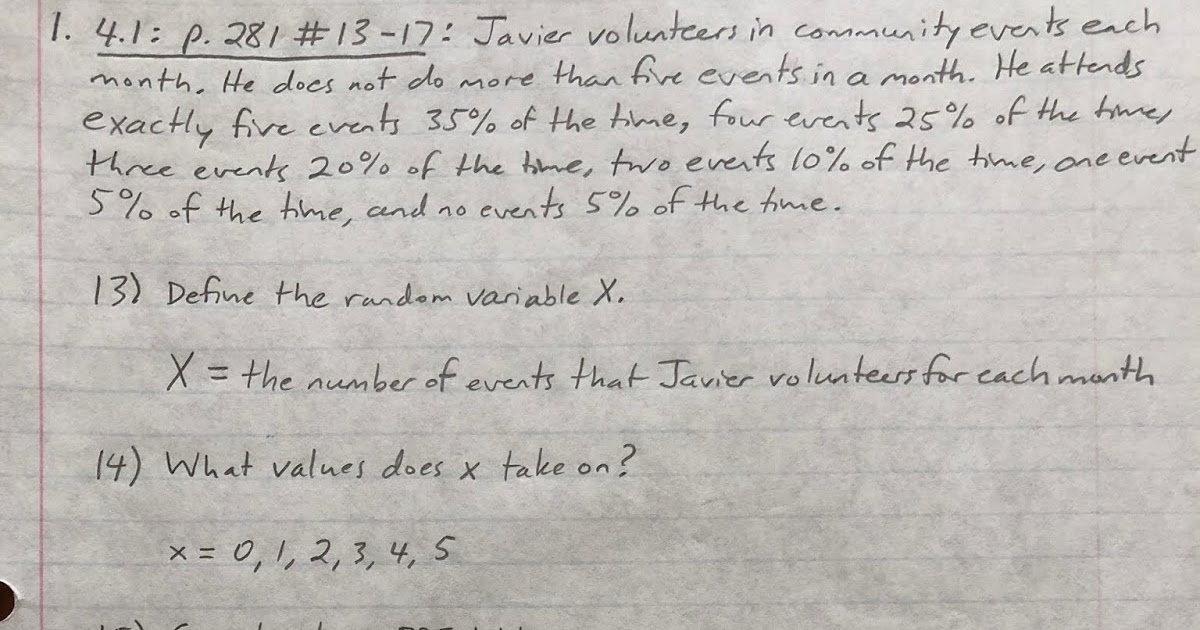 1. 4.1: p. 281 #13-17: Javier volunteers in community events each
month. He does not do more than five events in a month. He attends
exactly five events 35% of the time, four events 25% of the time,
three events 20% of the time, two events 10% of the time, one event
5% of the time, and no events 5% of the time.
13) Define the random variable X.
X = the number of events that Javier volunteers for each month
14) What values does x take on?
x = 0, 1, 2, 3, 4, 5